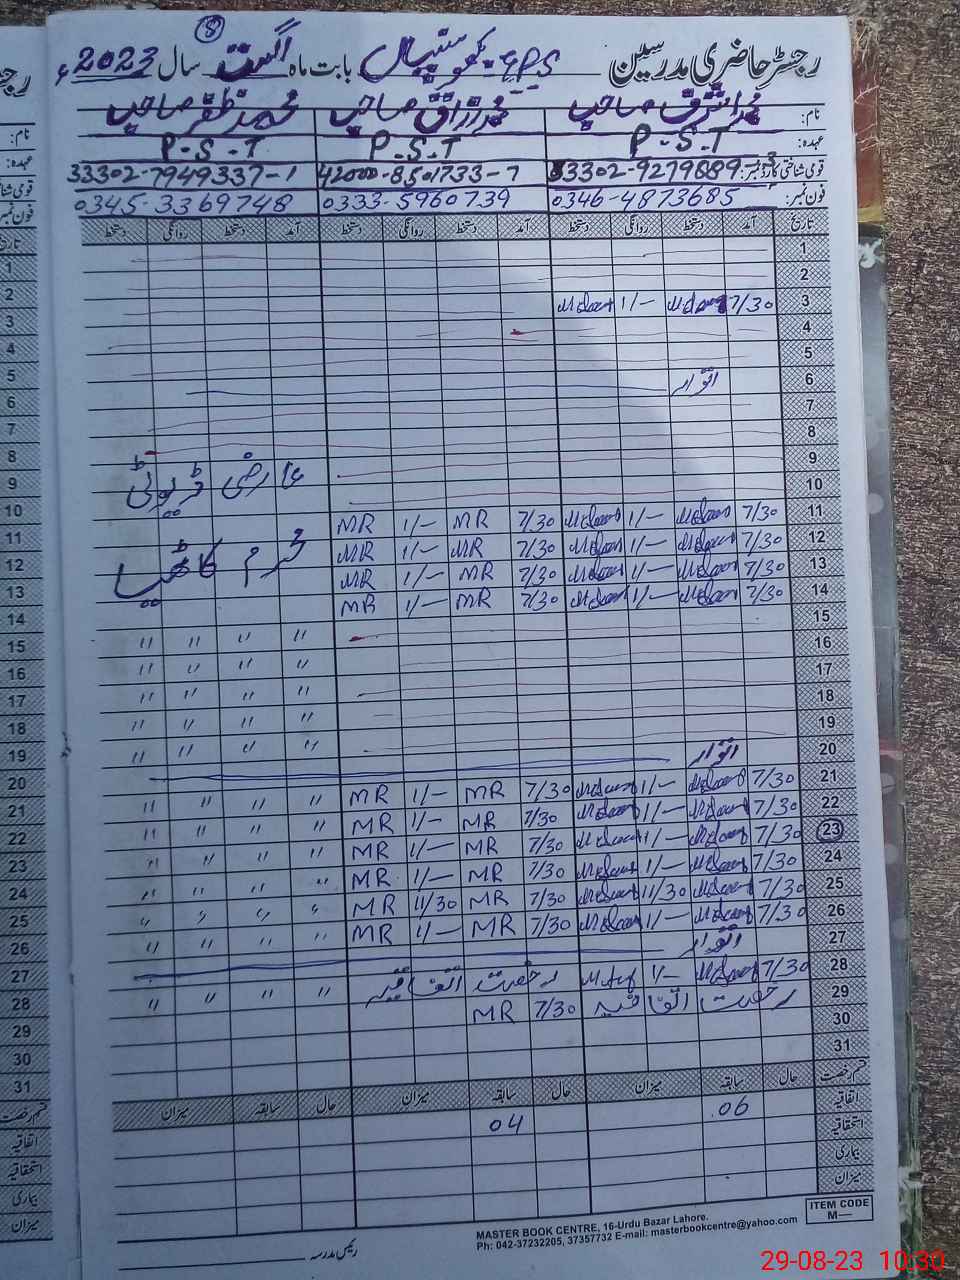 رجسٹر حاضری مدرسین GPS بابت ماہ اگست سال 2023ء
8
نام: محمد اشرف صاحب محمد رزاق صاحب محمد ظفر صاحب
عہدہ: P-S-T P-S-T P-S-T
قومی شناختی کارڈ نمبر: 33302-9279889 42000-8501733-7 33302-7949337-1
فون نمبر: 0346-4873685 0333-5960739 0345-3369748
تاریخ آمد دستخط روانگی دستخط آمد دستخط روانگی دستخط آمد دستخط روانگی دستخط
1
2
3 7/30 1/-
4
5
6 اتوار
7
8
9 عارضی ڈیوٹی
10
11 7/30 1/- 7/30 MR 1/- MR
12 7/30 1/- 7/30 MR 1/- MR
13 7/30 1/- 7/30 MR 1/- MR
14 7/30 1/- 7/30 MR 1/- MR
15 〃 〃 〃 〃
16 〃 〃 〃 〃
17 〃 〃 〃 〃
18 〃 〃 〃 〃
19 〃 〃 〃 〃
20 اتوار
21 7/30 1/- 7/30 MR 1/- MR 〃 〃 〃 〃
22 7/30 1/- 7/30 MR 1/- MR 〃 〃 〃 〃
23 7/30 1/- 7/30 MR 1/- MR 〃 〃 〃 〃
24 7/30 1/- 7/30 MR 1/- MR 〃 〃 〃 〃
25 7/30 11/30 7/30 MR 11/30 MR 〃 〃 〃 〃
26 7/30 1/- 7/30 MR 1/- MR 〃 〃 〃 〃
27 اتوار
28 7/30 1/- رخصت اتفاقیہ 〃 〃 〃 〃
29 رخصت اتفاقیہ 7/30 MR
30
31
قسم رخصت حال سابقہ میزان حال سابقہ میزان حال سابقہ میزان
اتفاقیہ 06 04
استحقاقیہ
بیماری
میزان
رئیس مدرسہ
MASTER BOOK CENTRE, 16-Urdu Bazar Lahore.
Ph: 042-37232205, 37357732 E-mail: masterbookcentre@yahoo.com
ITEM CODE
M—
29-08-23 10:30